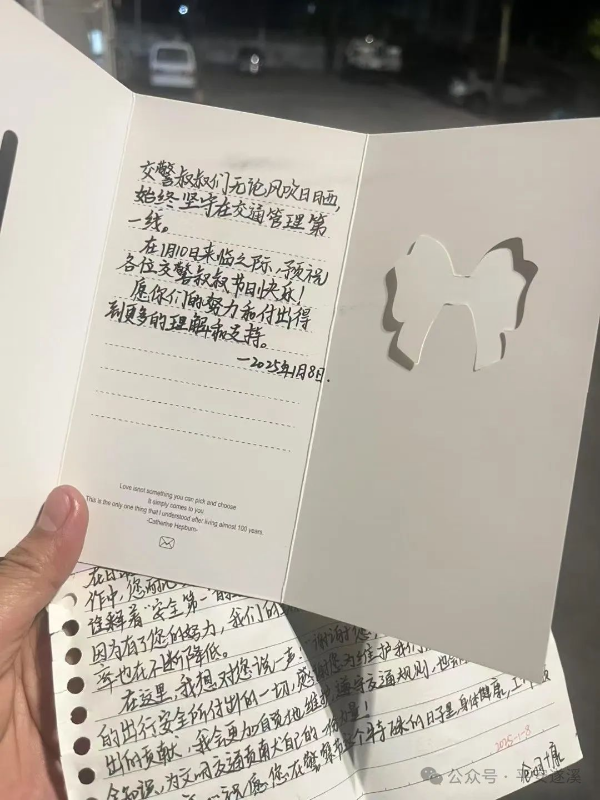 交警叔叔们无论风吹日晒,
始终坚守在交通管理第
一线。
在1月10日来临之际,预祝
各位交警叔叔节日快乐!
愿你们的努力和付出得
到更多的理解和支持。
—2025年1月8日.
Love is not something you can pick and choose
It simply comes to you
This is the only one thing that I understood after living almost 100 years.
-Catherine Hepburn-
在日
作中,您用
诠释着“安全第一”的
因为有了您的努力,我们的
率也在不断降低。
在这里,我想对您说一声
的出行安全所付出的一切,感
出的贡献,我会更加自觉地
全知识,为文明交通贡献
谢谢您
您为维护我们
遵守交通规则,也
自己的一份力量!
祝愿您在警察节这个特殊的日子里,身体健康,工作
2025-1-8
公众号·平安遂溪